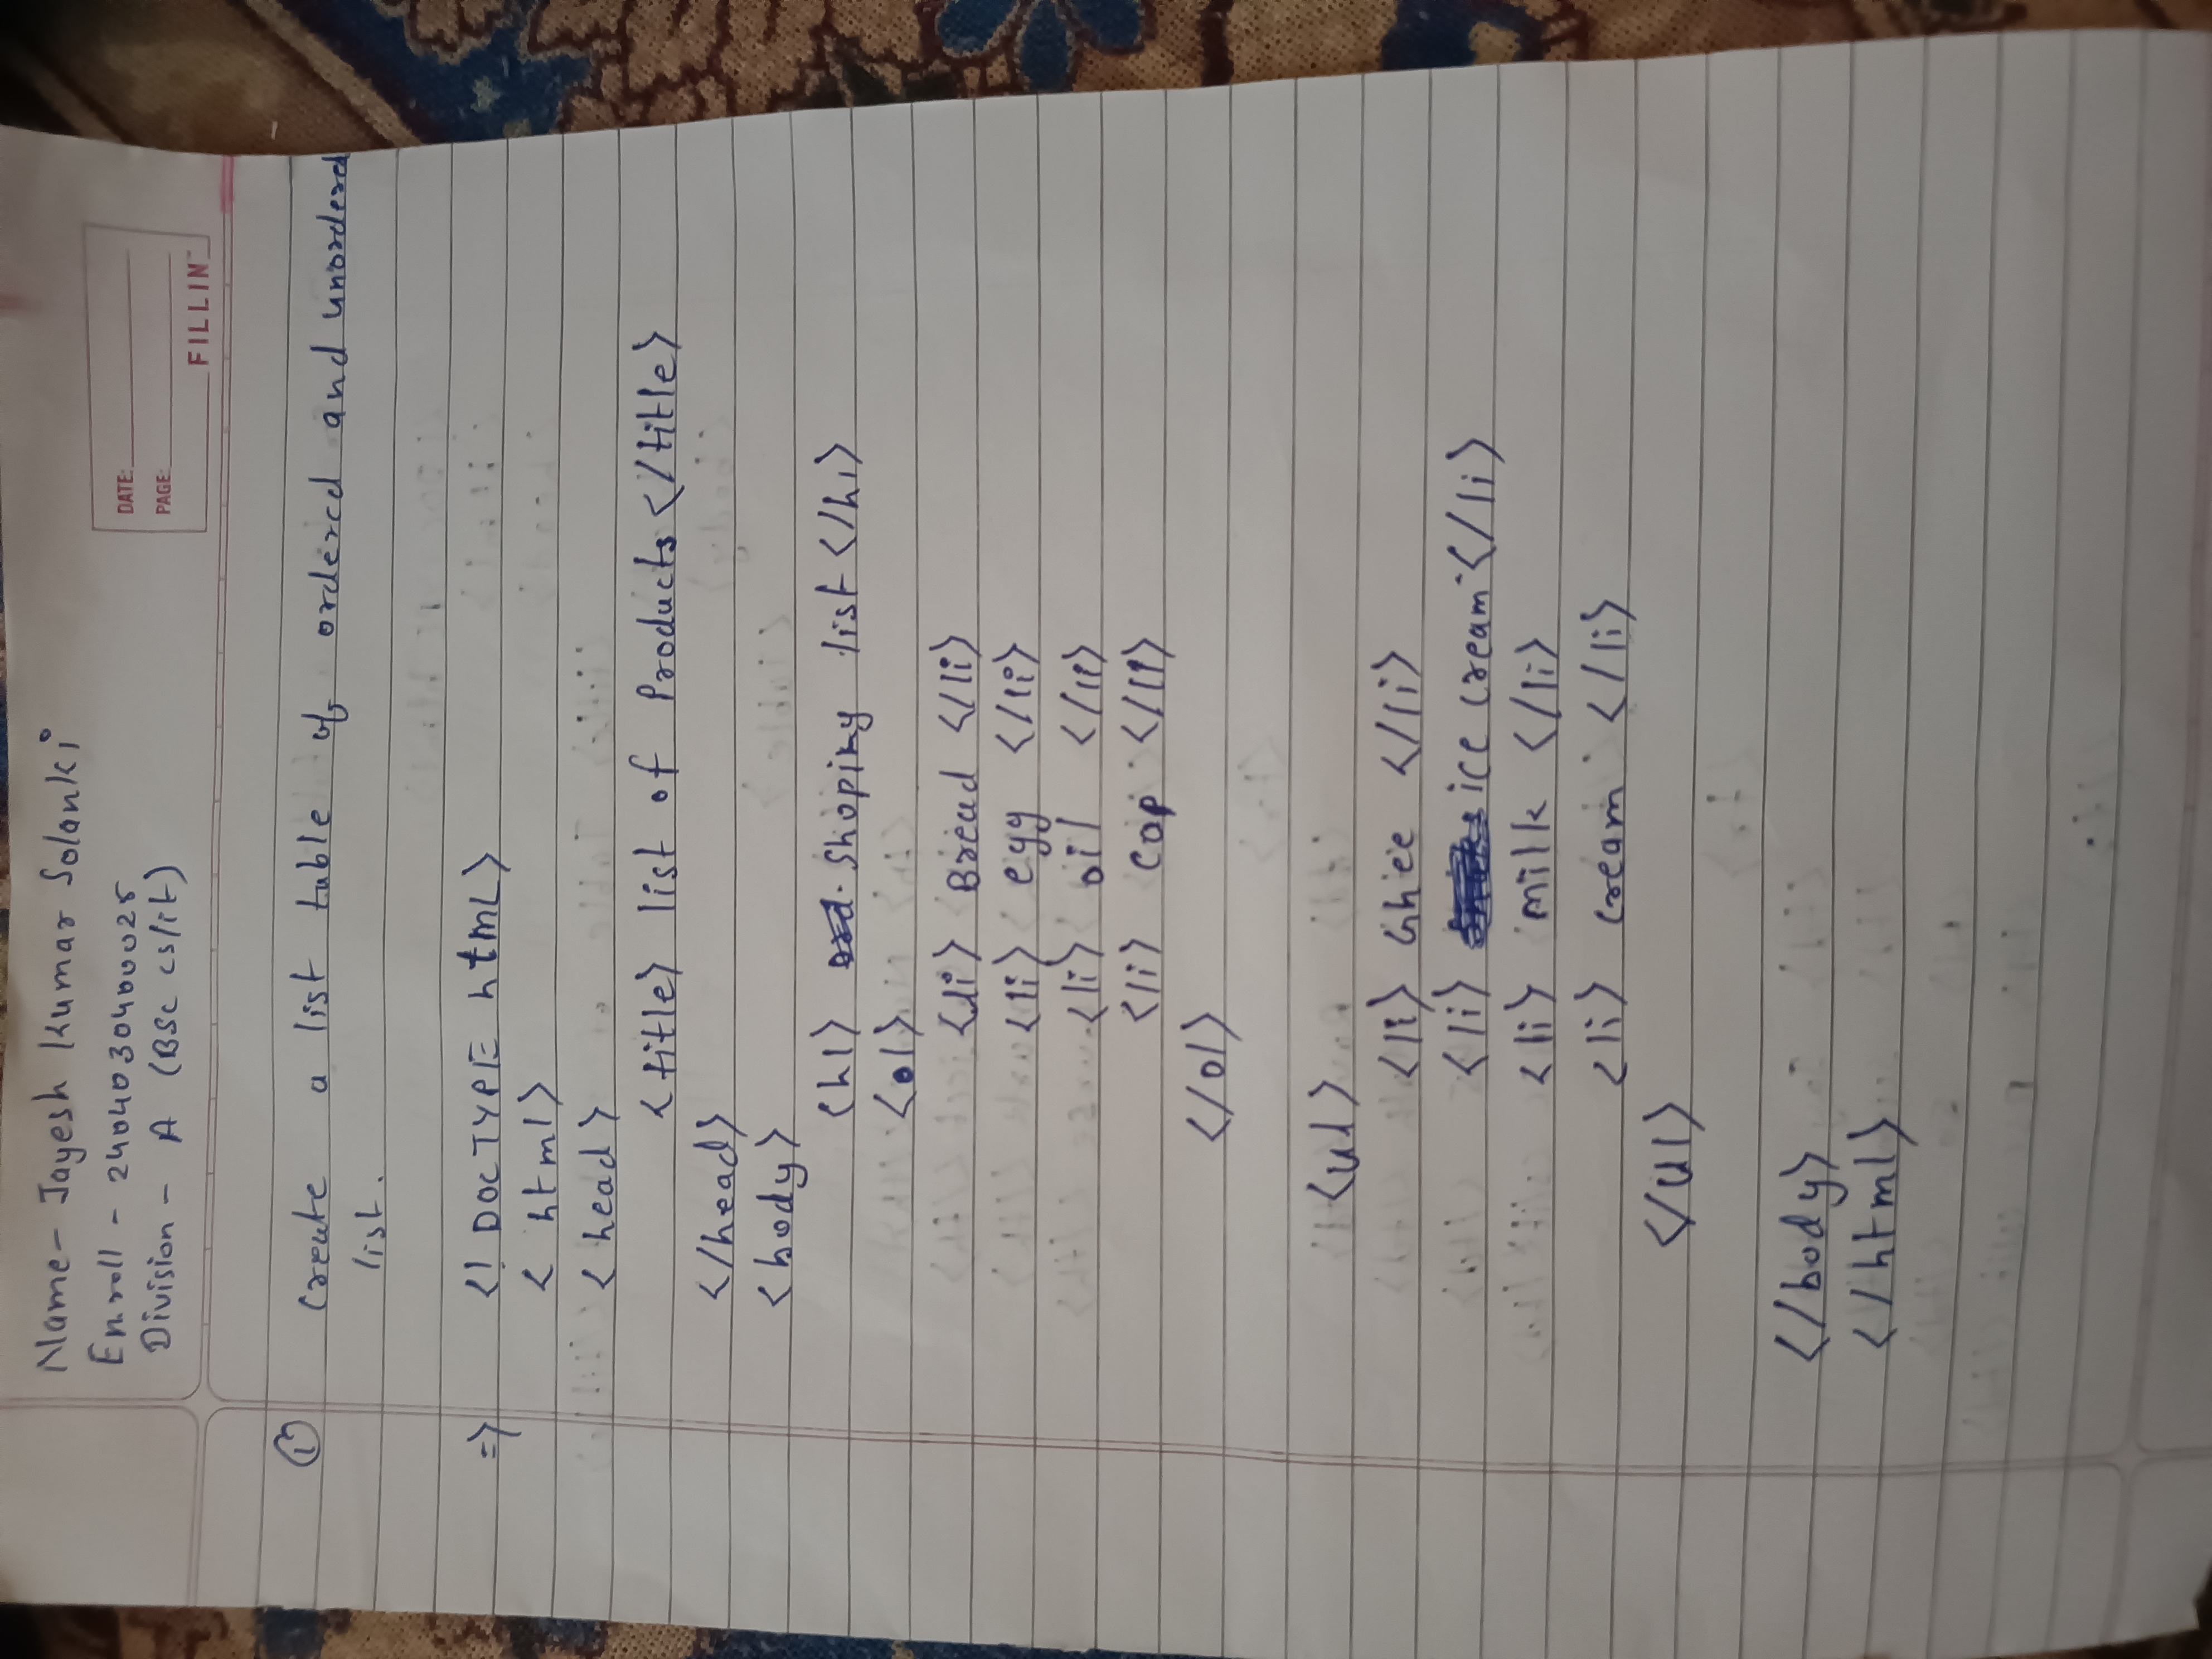 Name - Jayesh Kumar Solanki
Enroll - 2404030400025
Division - A (BSc cs/it)
DATE:
PAGE:
FILLIN
① Create a list table of ordered and unordered
list.
=> <! DOCTYPE html>
< html>
< head>
< title> list of Products </title>
</head>
<body>
<h1> Shoping list </h1>
<ol>
<li> Bread </li>
<li> egg </li>
<li> oil </li>
<li> cap </li>
</ol>
<ul>
<li> Ghee </li>
<li> ice cream </li>
<li> milk </li>
<li> cream </li>
</ul>
</body>
</html>